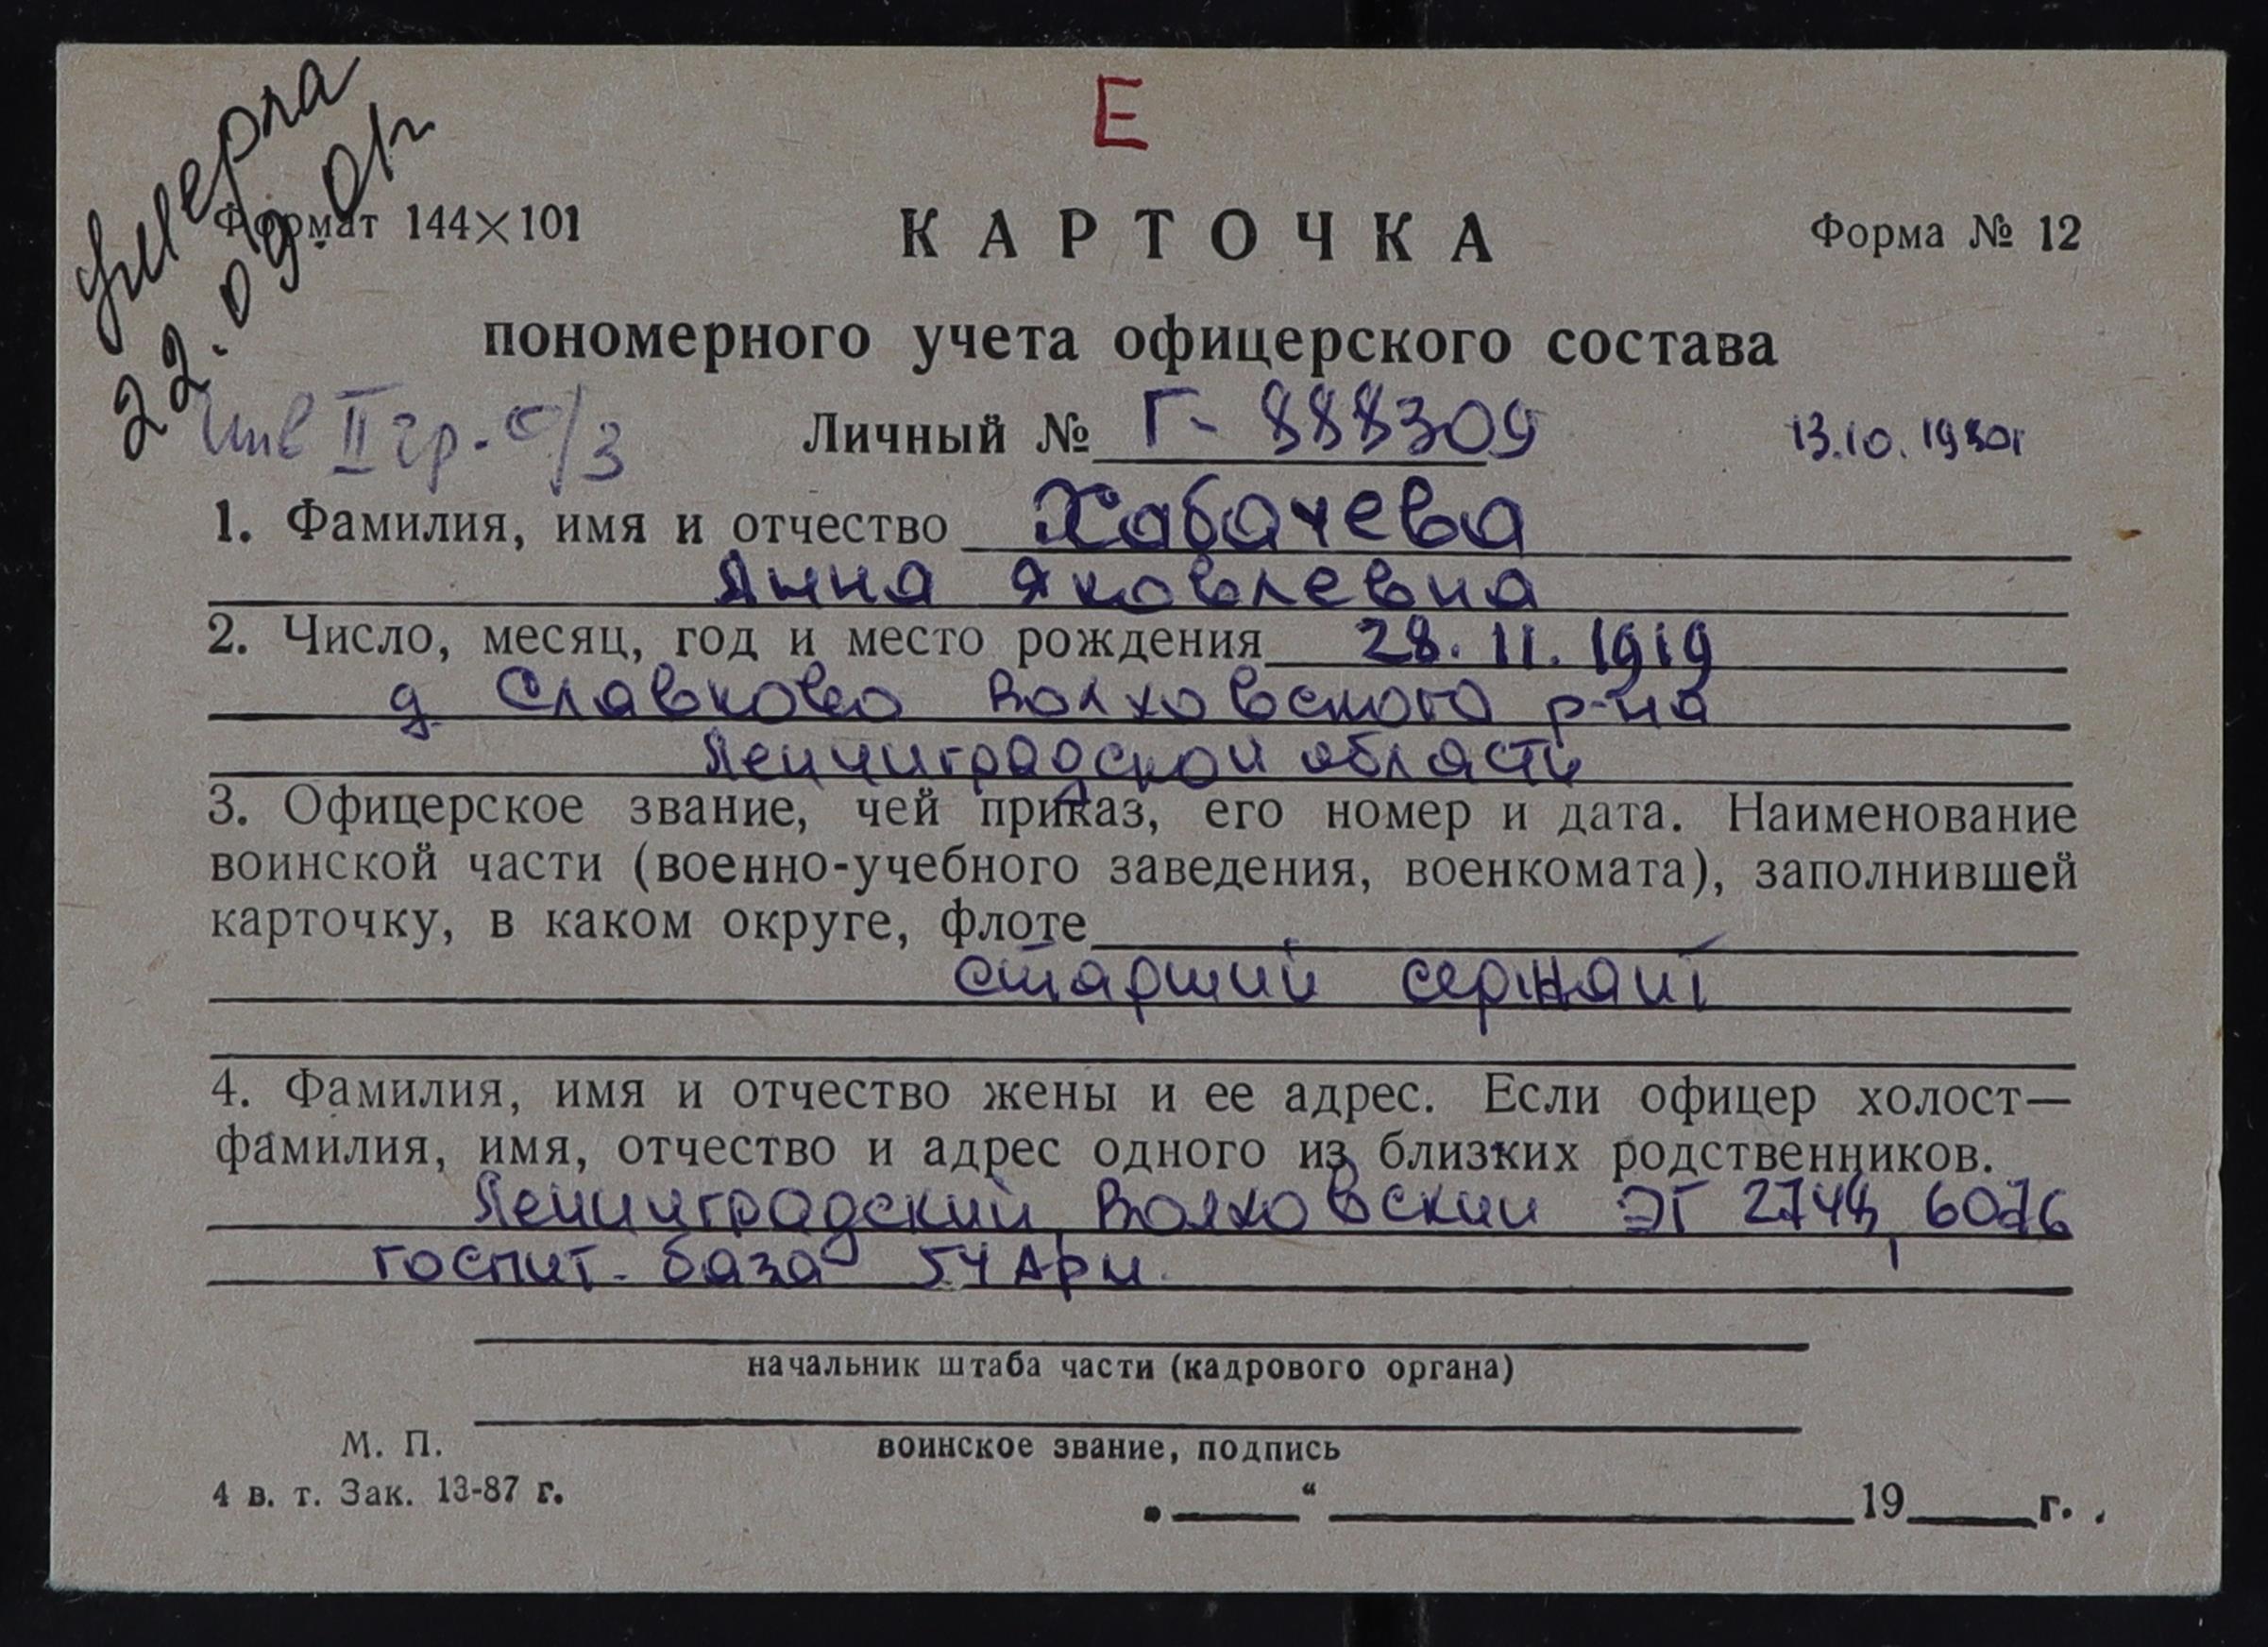 Е
умерла
22.09.01г
Формат 144×101
КАРТОЧКА
Форма № 12
пономерного учета офицерского состава
Инв II гр. - с/з
Личный № Г- 888309
13.10.1980г
1. Фамилия, имя и отчество Хабачева
Анна Яковлевна
2. Число, месяц, год и место рождения 28.11.1919
д Славково Волховского р-на
Ленинградской области
3. Офицерское звание, чей приказ, его номер и дата. Наименование
воинской части (военно-учебного заведения, военкомата), заполнившей
карточку, в каком округе, флоте
старший сержант
4. Фамилия, имя и отчество жены и ее адрес. Если офицер холост—
фамилия, имя, отчество и адрес одного из близких родственников.
Ленинградский, Волховский ЭГ 2744, 6076
госпит. база 54 Арм.
начальник штаба части (кадрового органа)
М. П.
воинское звание, подпись
4 в. т. Зак. 13-87 г.
„ “ 19 г.